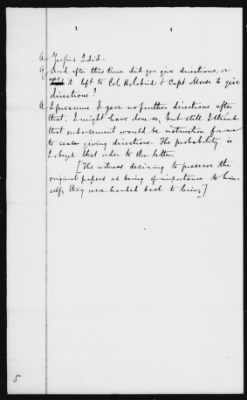 A. Yes sir I did.
Q. And after this time did you give directions, or
was it left to Col. Holabird & Capt Morse to give
directions?
A. I presume I gave no further directions after
that. I might have done so, but still I think
that endorsement would be instruction for me
to cease giving directions. The probability is
I obeyed that order to the letter.
[The witness desiring to preserve the
original papers as being of importance to him-
self, they were handed back to him.]
5